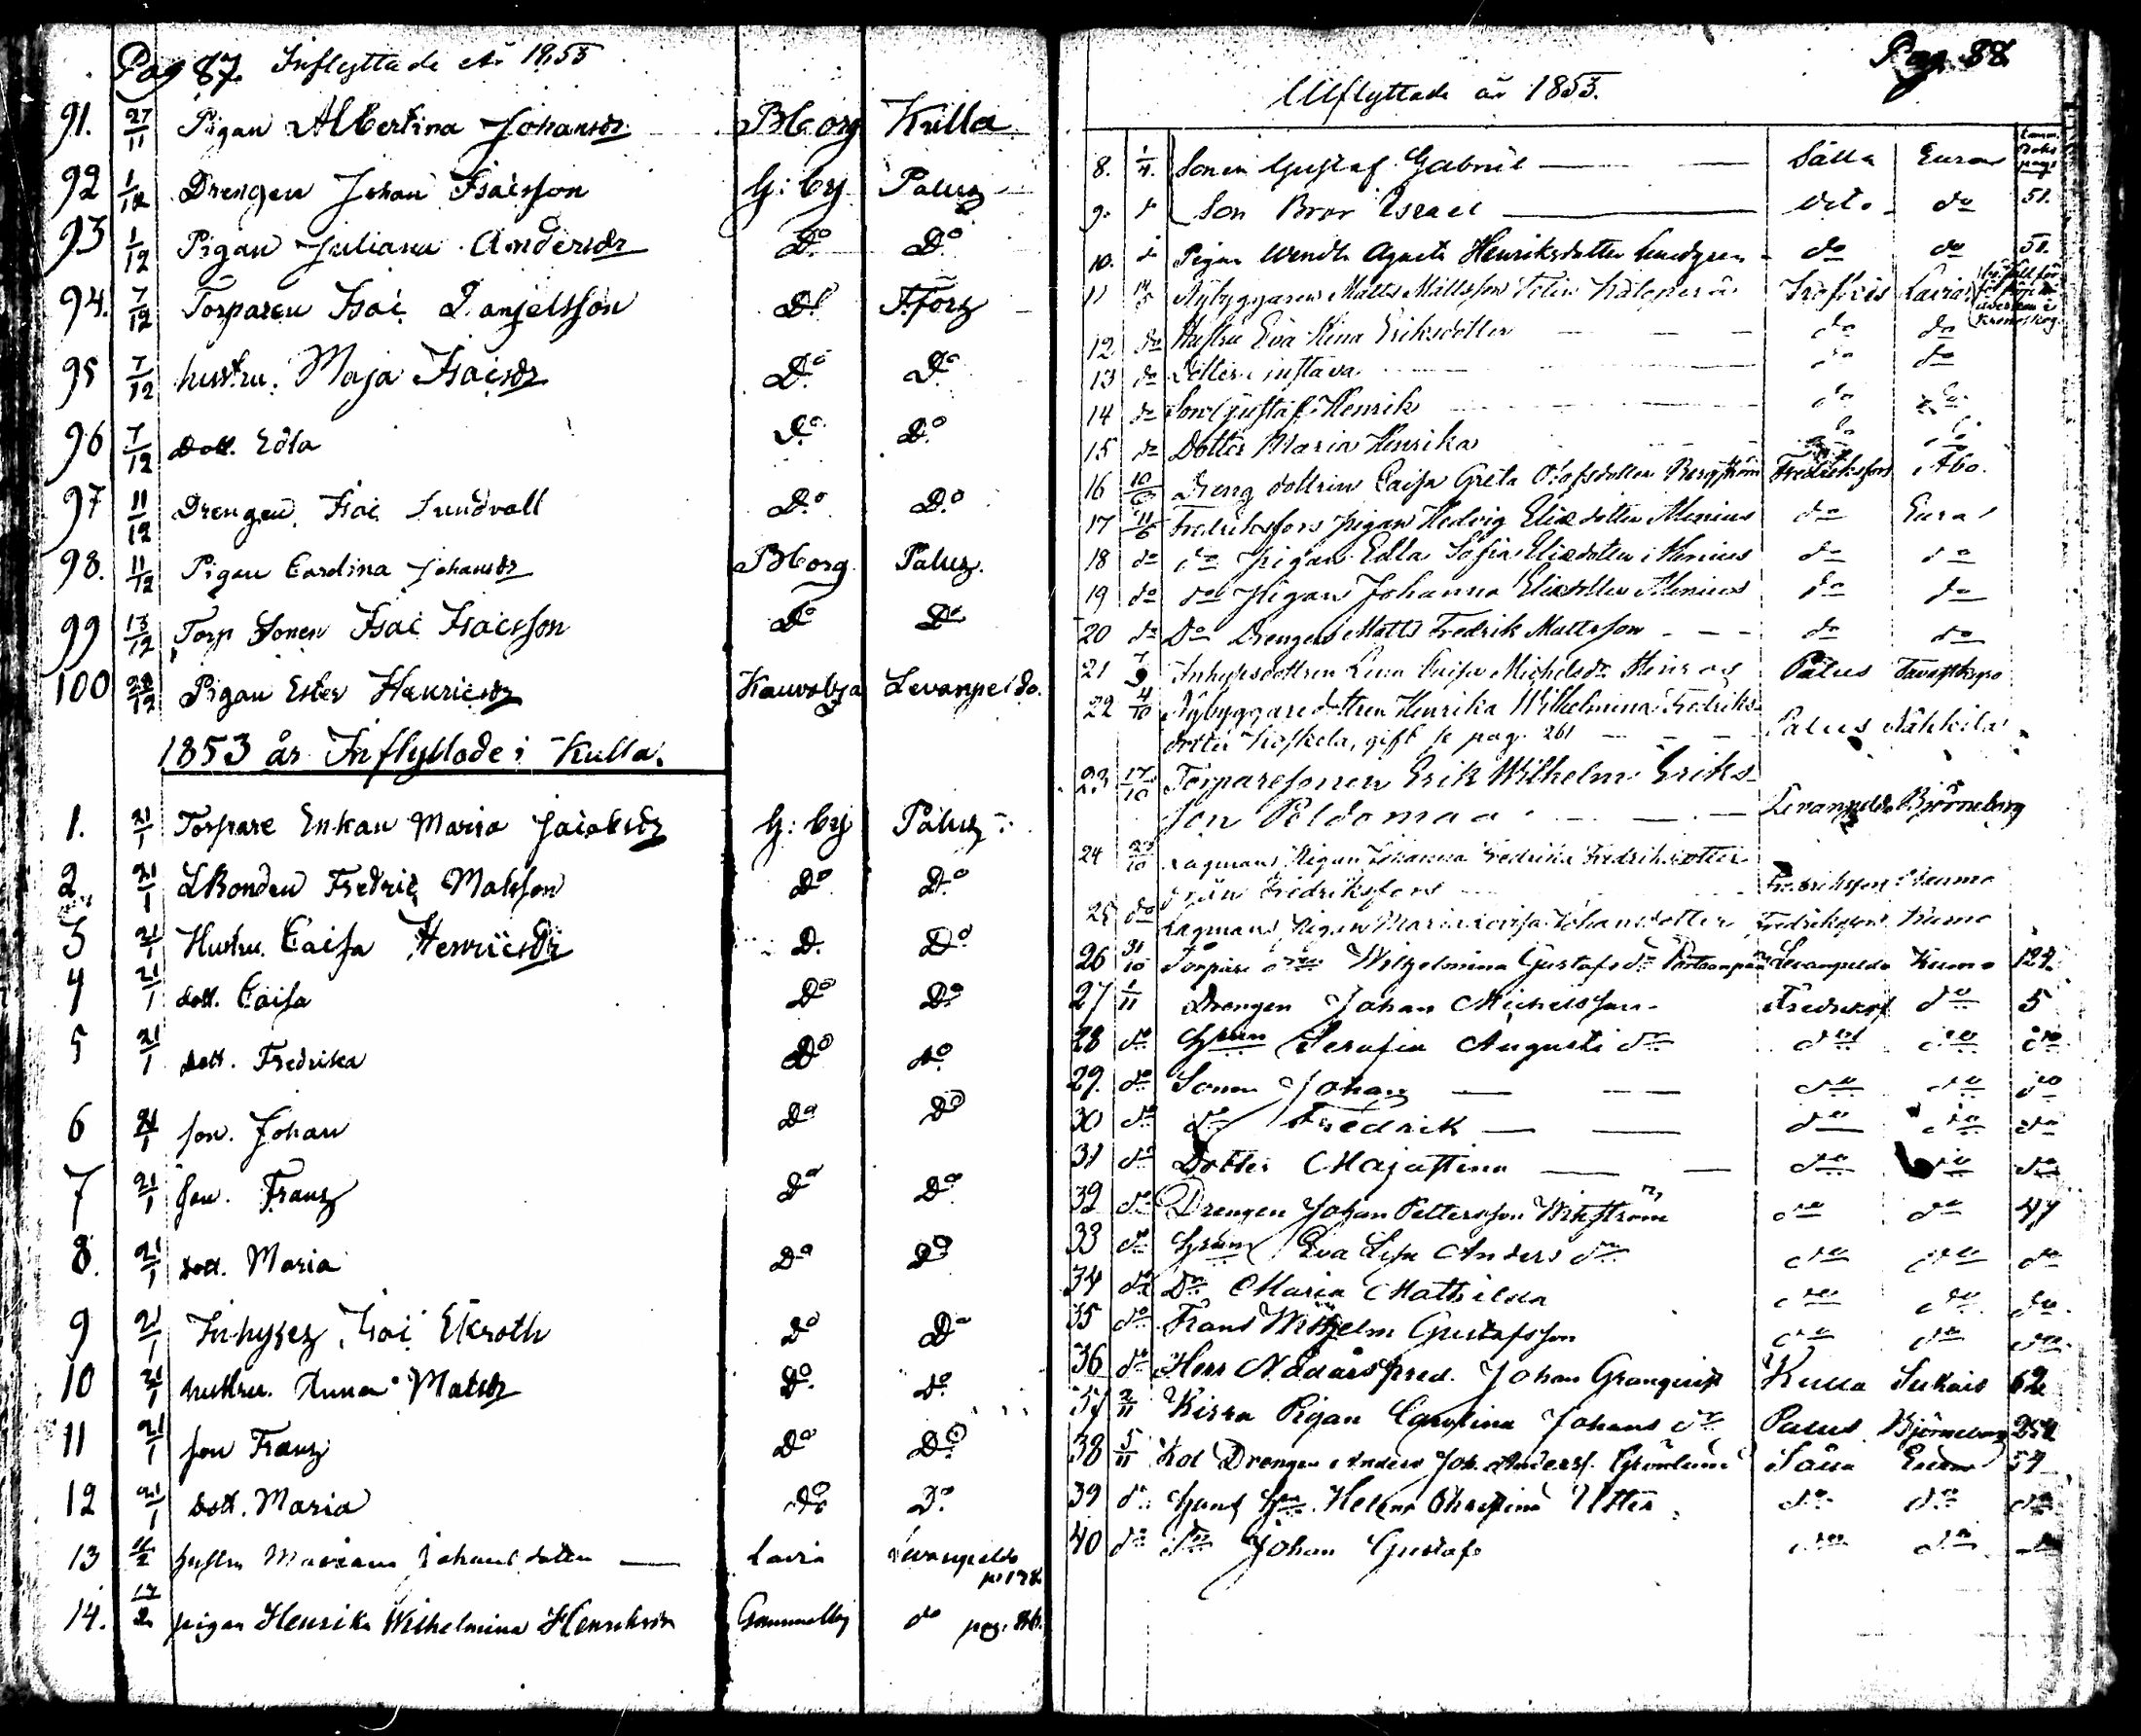 Pag 87. Inflyttade År 1853
91. 27/11 Pigan Albertina Johansdr Bborg Kulla
92 1/12 Drengen Johan Isaisson G: by Paluz
93 1/12 Pigan Juliana Andersdr Do Do
94. 7/12 Torparen Isai Danjelsson Do F.forz
95 7/12 hustru. Maja Isaisdr Do Do
96 7/12 Dott. Edla Do Do
97 11/12 Drengen Isai Sundvall Do Do
98. 11/12 Pigan Carolina Johansdr Bborg Paluz.
99 13/12 Torp Sonen Isai Isaisson Do Do
100 28/12 Pigan Ester Henricsdr Kauvatza Levanpeldo.
1853 år Inflyttade i Kulla.
1. 21/1 Torpare Enkan Maria Jacobsdr G: by Paluz
2. 21/1 LBonden Fredric Matsson Do Do
3 21/1 Hustru. Caisa Henricsdr D. Do
4 21/1 dott. Caisa Do Do
5 21/1 dott. Fredrika Do Do
6 21/1 son. Johan Do Do
7 21/1 son. Franz Do Do
8. 21/1 dott. Maria Do Do
9 21/1 Inhysez Isai Ekroth Do Do
10 21/1 hustru. Anna Matsdr Do Do
11 21/1 son Franz Do Do
12 21/1 dott. Maria Do Do
13 hustru Mariana Johansdoter Lavia Levanpeldo
14. 17/2 pigan Henrika Wilhelmina Henriksdr Gammelby do pag. 86.
Pag. 88
Utflyttade år 1853.
8. 1/4. Sonen Gustaf Gabriel Sålla Eura
9. do Son Bror Israel dito do 51.
10. do Pigan Wendla Agneta Henriksdotter Lindgren do do 51.
11 Nybyggaren Matts Mattsson Lavia
12 do Hustru Eva Stina Eriksdotter do do
13 do Dotter Gustava do do
14 do Son Gustaf Henrik do do
15 do Dotter Maria Henrika do do
16 Dreng dottren Caisa Greta Olofsdotter Bergström Fredriksfors Åbo.
17 11/6 Fredriksfors pigan Hedvig Eliædotter Alenius do Eura
18 do do pigan Edla Sofia Eliædotter Alenius do do
19 do do pigan Johanna Eliædotter Alenius do do
20 do Do Drengen Matts Fredrik Mattsson do do
21 7/9 Inhysesdottren Lena Caisa Michelsdr Palus Tavastkyro
22 4/10 Nybyggaredottren Henrika Wilhelmina Fredriks-
dotter Koskela, gift se pag. 261 Palus Nakkila
23 17/10 Torparesonen Erik Wilhelm Eriks-
son Peldomaa Levanpeldo Björneborg
24 Lagmans Pigan Johanna Fredrika Fredriksdotter
från Fredriksfors Fredriksfors Kumo
25 do Lagmans Pigan Maria Lovisa Johansdotter Fredriksfors Kumo
26 31/10 Torpare Wilhelmina Gustafsdr Levanpeldo Kumo 124.
27 1/11 Drengen Johan Michelsson Fredriksf do 5
28 do Hrun Serafia Augusti dr do do do
29. do Sonen Johan do do do
30 do do Fredrik do do do
31 do Dotter Majastina do do do
32 do Drengen Johan Pettersson Wikström do do 47
33 do Hrun Eva Lisa Anders dr do do do
34 do Dr Maria Mathilda do do do
35 do Frans Wilhelm Gustafsson do do do
36 do Herr Nådårspred. Johan Granqvist Kulla Sukais 62
37 2/11 Pigan Carolina Johans dr Palus Björneborg 254
38 5/11 Kol Drengen Anders Joh. Anders. Grönlund Sålla Eura 57
39 do Hans Hru Helena Christina Utter do do do
40 do Son Johan Gustaf do do do